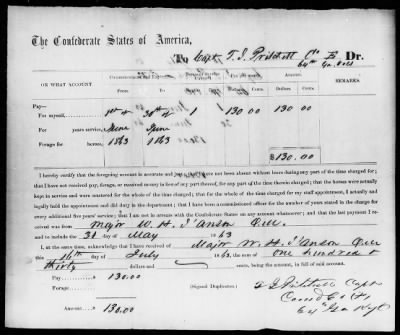 The Confederate States of America,
To Capt. T. J. Pritchett Co. E, Dr.
64th Ga. Vols
ON WHAT ACCOUNT
COMMENCEMENT AND EXPIRATION
From
To
AMOUNT
Dollars
Cents
REMARKS
Pay—
For myself, 1st of 30th of 1 130 00 130 00
For years service, June June
Forage for horses, 1863 1863
$130.00
I hereby certify that the foregoing account is accurate and just; that I have not been absent without leave during any part of the time charged for;
that I have not received pay, forage, or received money in lieu of any part thereof, for any part of the time therein charged; that the horses were actually
kept in service and were mustered for the whole of the time charged; that for the whole of the time charged for my staff appointment, I actually and
legally held the appointment and did duty in the department; that I have been a commissioned officer for the number of years stated in the charge for
every additional five years' service; that I am not in arrears with the Confederate States on any account whatsoever; and that the last payment I
received was from Major W. H. I'Anson Q.M.
and to include the 31 day of May 1863
I, at the same time, acknowledge that I have received of Major W. H. I'Anson Q.M.
this 16th day of July 1863, the sum of one hundred &
thirty dollars and cents, being the amount, in full of said account.
Pay 130.00
Forage
Amount 130.00
(Signed Duplicates.)
T J Pritchett Capt
Comd Co E
64th Ga Regt